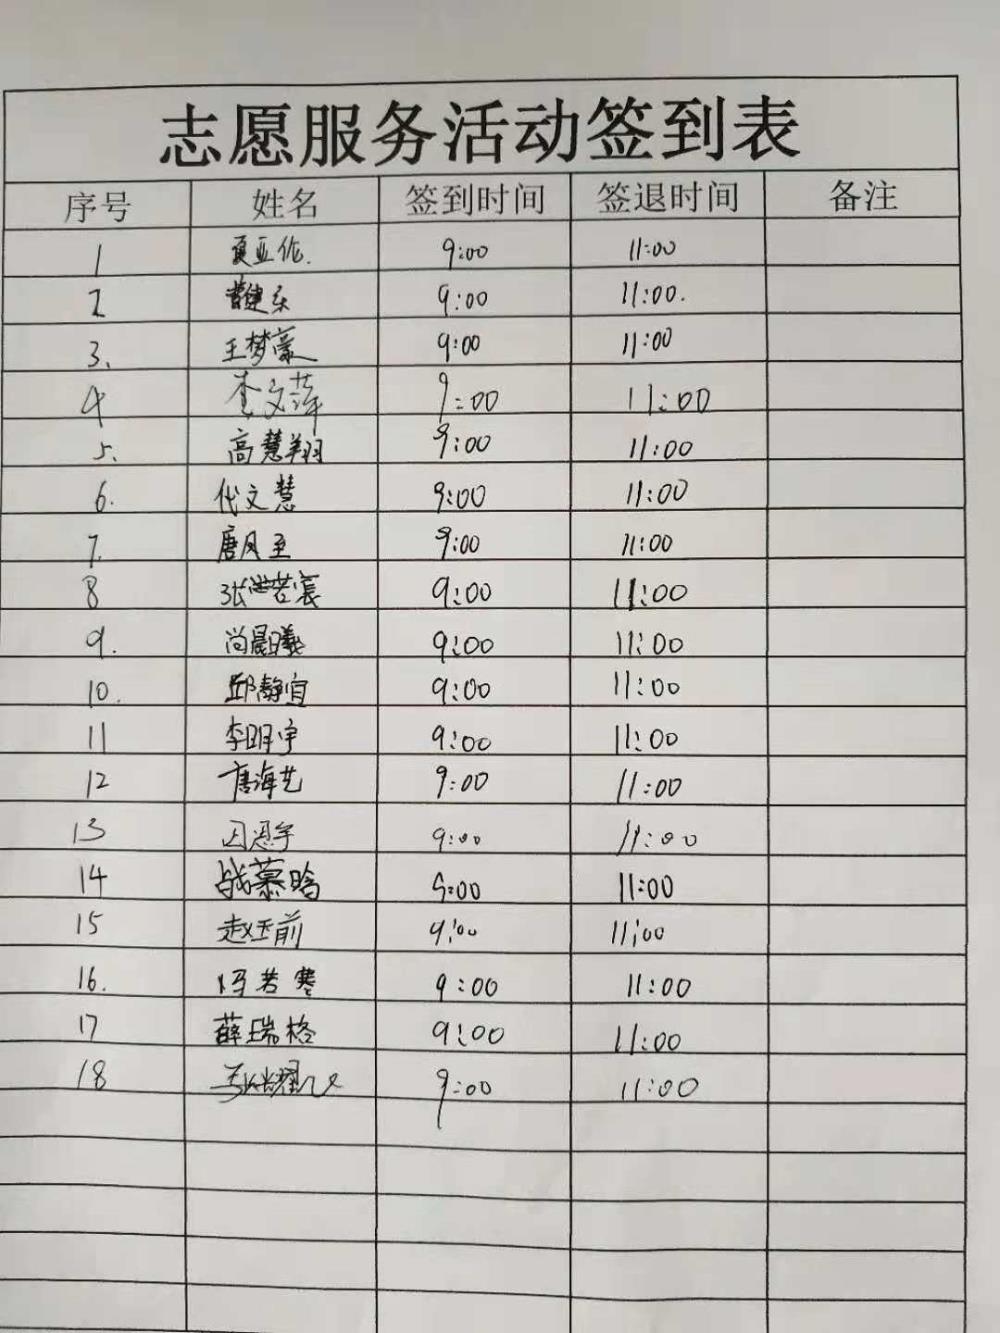 志愿服务活动签到表
序号 姓名 签到时间 签退时间 备注
1 夏亚伦. 9:00 11:00
2 健东 9:00 11:00.
3、 王梦豪 9:00 11:00
4 李文萍 9:00 11:00
5、 高慧翔 9:00 11:00
6. 代文慧 9:00 11:00
7. 唐凤至 9:00 11:00
8 张 9:00 11:00
9. 尚晨曦 9:00 11:00
10. 邱静宜 9:00 11:00
11 李明宇 9:00 11:00
12 唐海艺 9:00 11:00
13 9:00 11:00
14 战慕晗 9:00 11:00
15 赵玉前 9:00 11:00
16. 冯若寒 9:00 11:00
17 薛瑞格 9:00 11:00
18 9:00 11:00